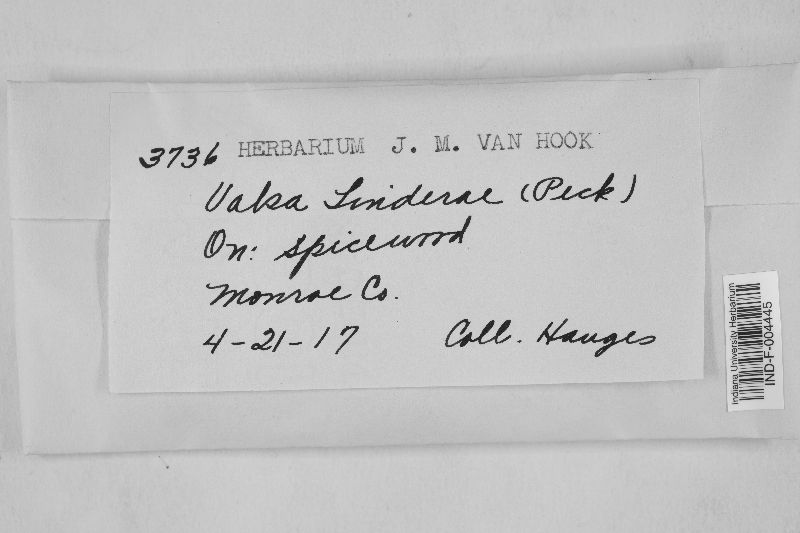 3736 HERBARIUM J. M. VAN HOOK
Valsa Linderae (Peck)
On: spicewood
Monroe Co.
4-21-17 Coll. Hauges
Indiana University Herbarium
IND-F-004445